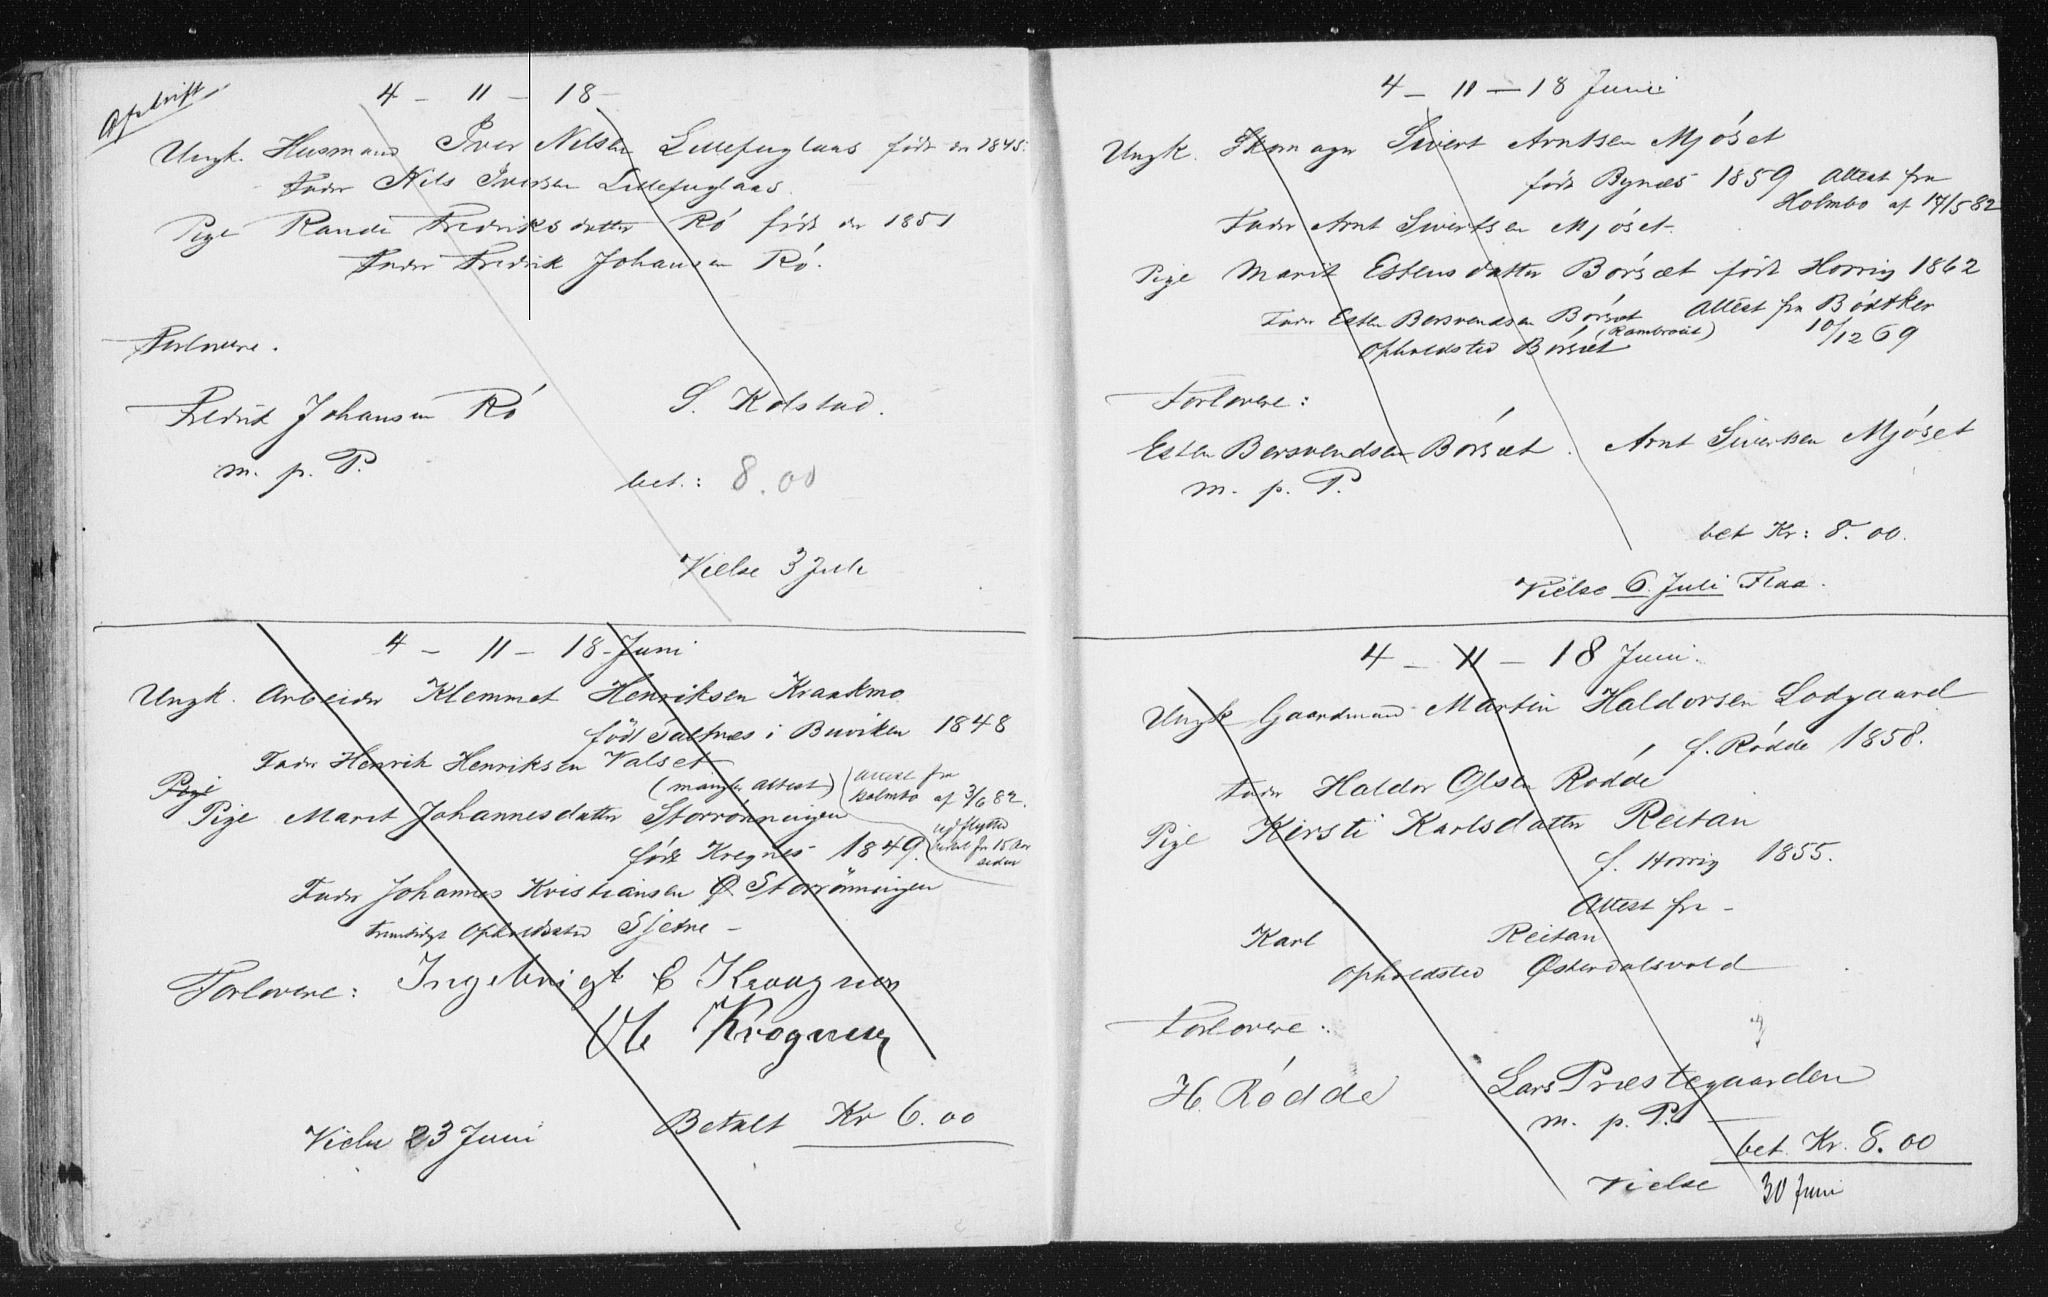 Afskrift
4 - 11 - 18
Ungk. Husmand Iver Nilsen Lillefuglaas født der 1845.
Fader Nils Iversen Lillefuglaas.
Pige Randi Fredriksdatter Rö født der 1851
Fader Fredrik Johansen Rö.
Forlovere.
Fredrik Johansen Rö
S. Kolstad.
m. p. P.
bet.: 8.00
Vielse 3 Juli
4 - 11 - 18 - Juni
Ungk. Arbeider Klemmet Henriksen Kraakmo
født Saltnes i Buviken 1848
Fader Henrik Henriksen Valset
(mangler Attest)
Attest fra
Holmbo af 3/6 82.
Pige
Pige Marit Johannesdatter Storrönningen
født Kregnes 1849.
udflyttet
for 15 Aar
siden
Fader Johannes Kristiansen Storrönningen
Opholdssted Sjetne -
Forlovere: Ingebrigt E Kroognes
Ole Krognes
Betalt Kr 6.00
Vielse 23 Juni
4 - 11 - 18 Juni
Ungk. Skomager Sivert Arntsen Mjöset
født Bynæs 1859 Attest fra
Holmbo af 17/5 82
Fader Arnt Sivertsen Mjöset.
Pige Marit Estensdatter Börsæt født Horrig 1862
Fader Esten Bersvendsen Börsæt Attest fra Bödtker
10/12 69
Opholdsted Börsæt
Forlovere:
Esten Bersvendsen Börsæt. Arnt Sivertsen Mjöset
m. p. P.
bet Kr: 8.00.
Vielse 6. Juli Flaa.
4 - 11 - 18 Juni.
Ungk Gaardmand Martin Haldorsen Lodgaard
f. Rödde 1858.
Fader Haldor Olsen Rödde
Pige Kirsti Karlsdatter Reitan
f. Horrig 1855.
Attest fra -
Karl Reitan
Opholdsted Østerdalsvold
Forlovere:
H. Rödde
Lars Præstegaarden
m. p. P.
bet. Kr. 8.00
Vielse 30 Juni